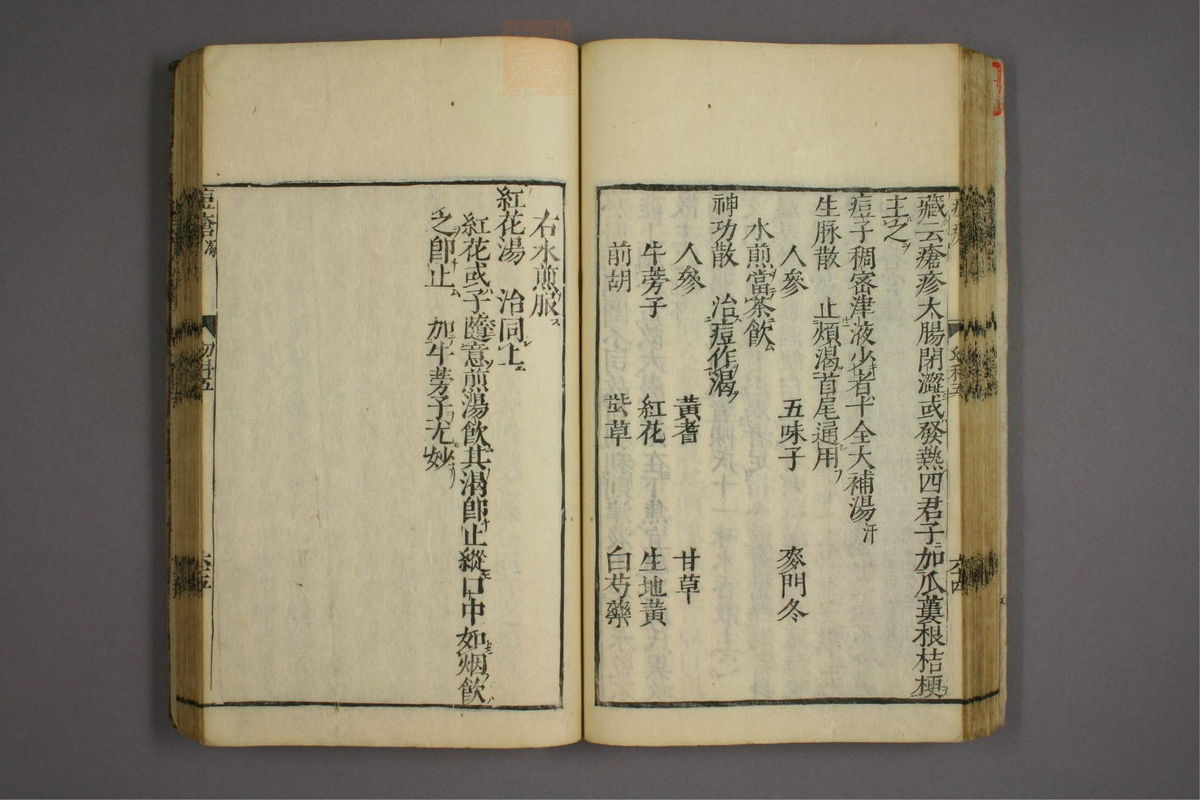 藏云瘡疹大腸閉澀或發熱四君子加瓜蔞根桔梗
主之
痘子稠密津液少者十全大補湯汗
生脉散　止煩渴首尾通用
人參　五味子　麥門冬
水煎當茶飲
神功散　治痘作渴
人參　黃耆　甘草
牛蒡子　紅花　生地黃
前胡　紫草　白芍藥
右水煎服
紅花湯　治同上
紅花或子隨意煎湯飲其渴即止縱口中如烟飲
之即止　加牛蒡子尤妙
痘瘡
幼科五
六五